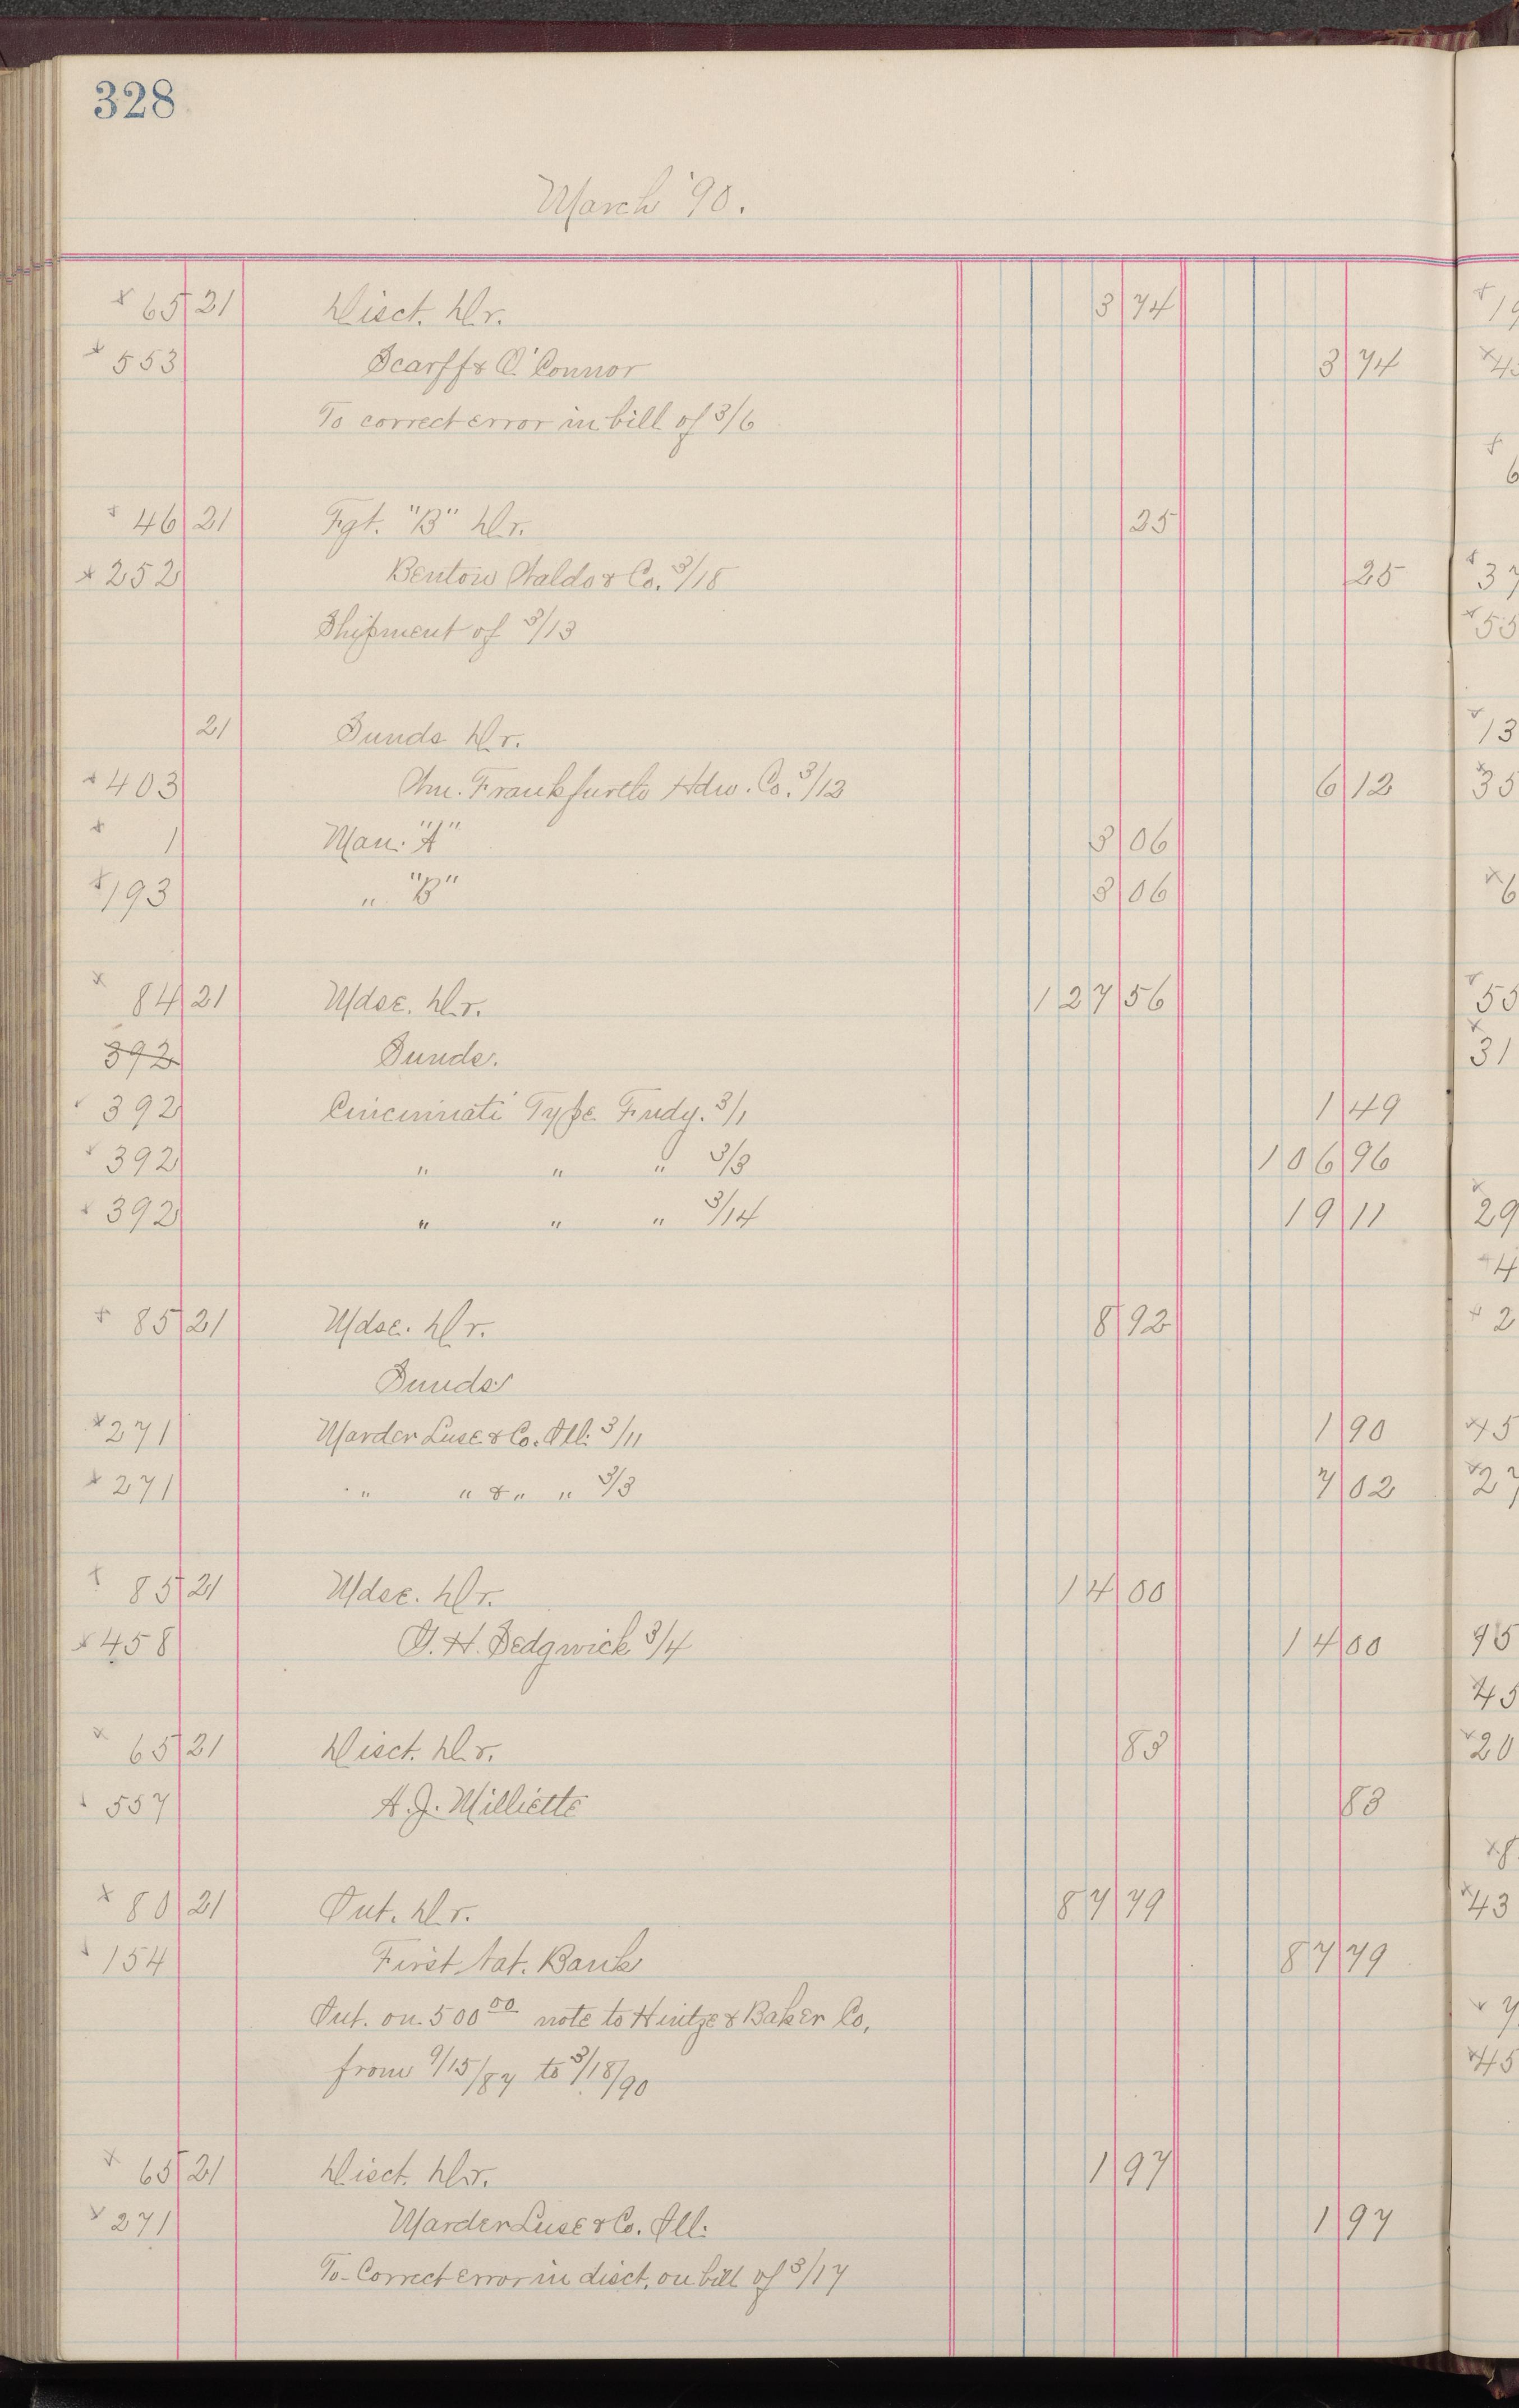 328
March '90.
65 21 Disct. Dr. 3 74
553 Scarff & O'Connor 3 74
To correct error in bill of 3/6
46 21 Fgt. "B" Dr. 25
252 Benton Waldo & Co. 3/18 25
Shipment of 3/13
21 Sunds Dr.
403 Frankfurth Hdw. Co. 3/12 6 12
1 Man. "A" 3 06
193 " "B" 3 06
84 21 Mdse. Dr. 127 56
392 Sunds.
392 Cincinnati Type Fndy. 3/1 1 49
392 " " " 3/3 106 96
392 " " " 3/14 19 11
85 21 Mdse. Dr. 8 92
Sunds
271 Marder Luse & Co. Ill. 3/11 1 90
271 " " & " " 3/3 7 02
85 21 Mdse. Dr. 14 00
458 H. Sedgwick 3/4 14 00
65 21 Disct. Dr. 83
557 A. J. Milliette 83
80 21 Int. Dr. 87 79
154 First Nat. Bank 87 79
Int. on 500 00 note to Hintze & Baker Co,
from 9/15/87 to 3/18/90
65 21 Disct. Dr. 1 97
271 Marder Luse & Co. Ill. 1 97
To Correct error in disct. on bill of 3/17